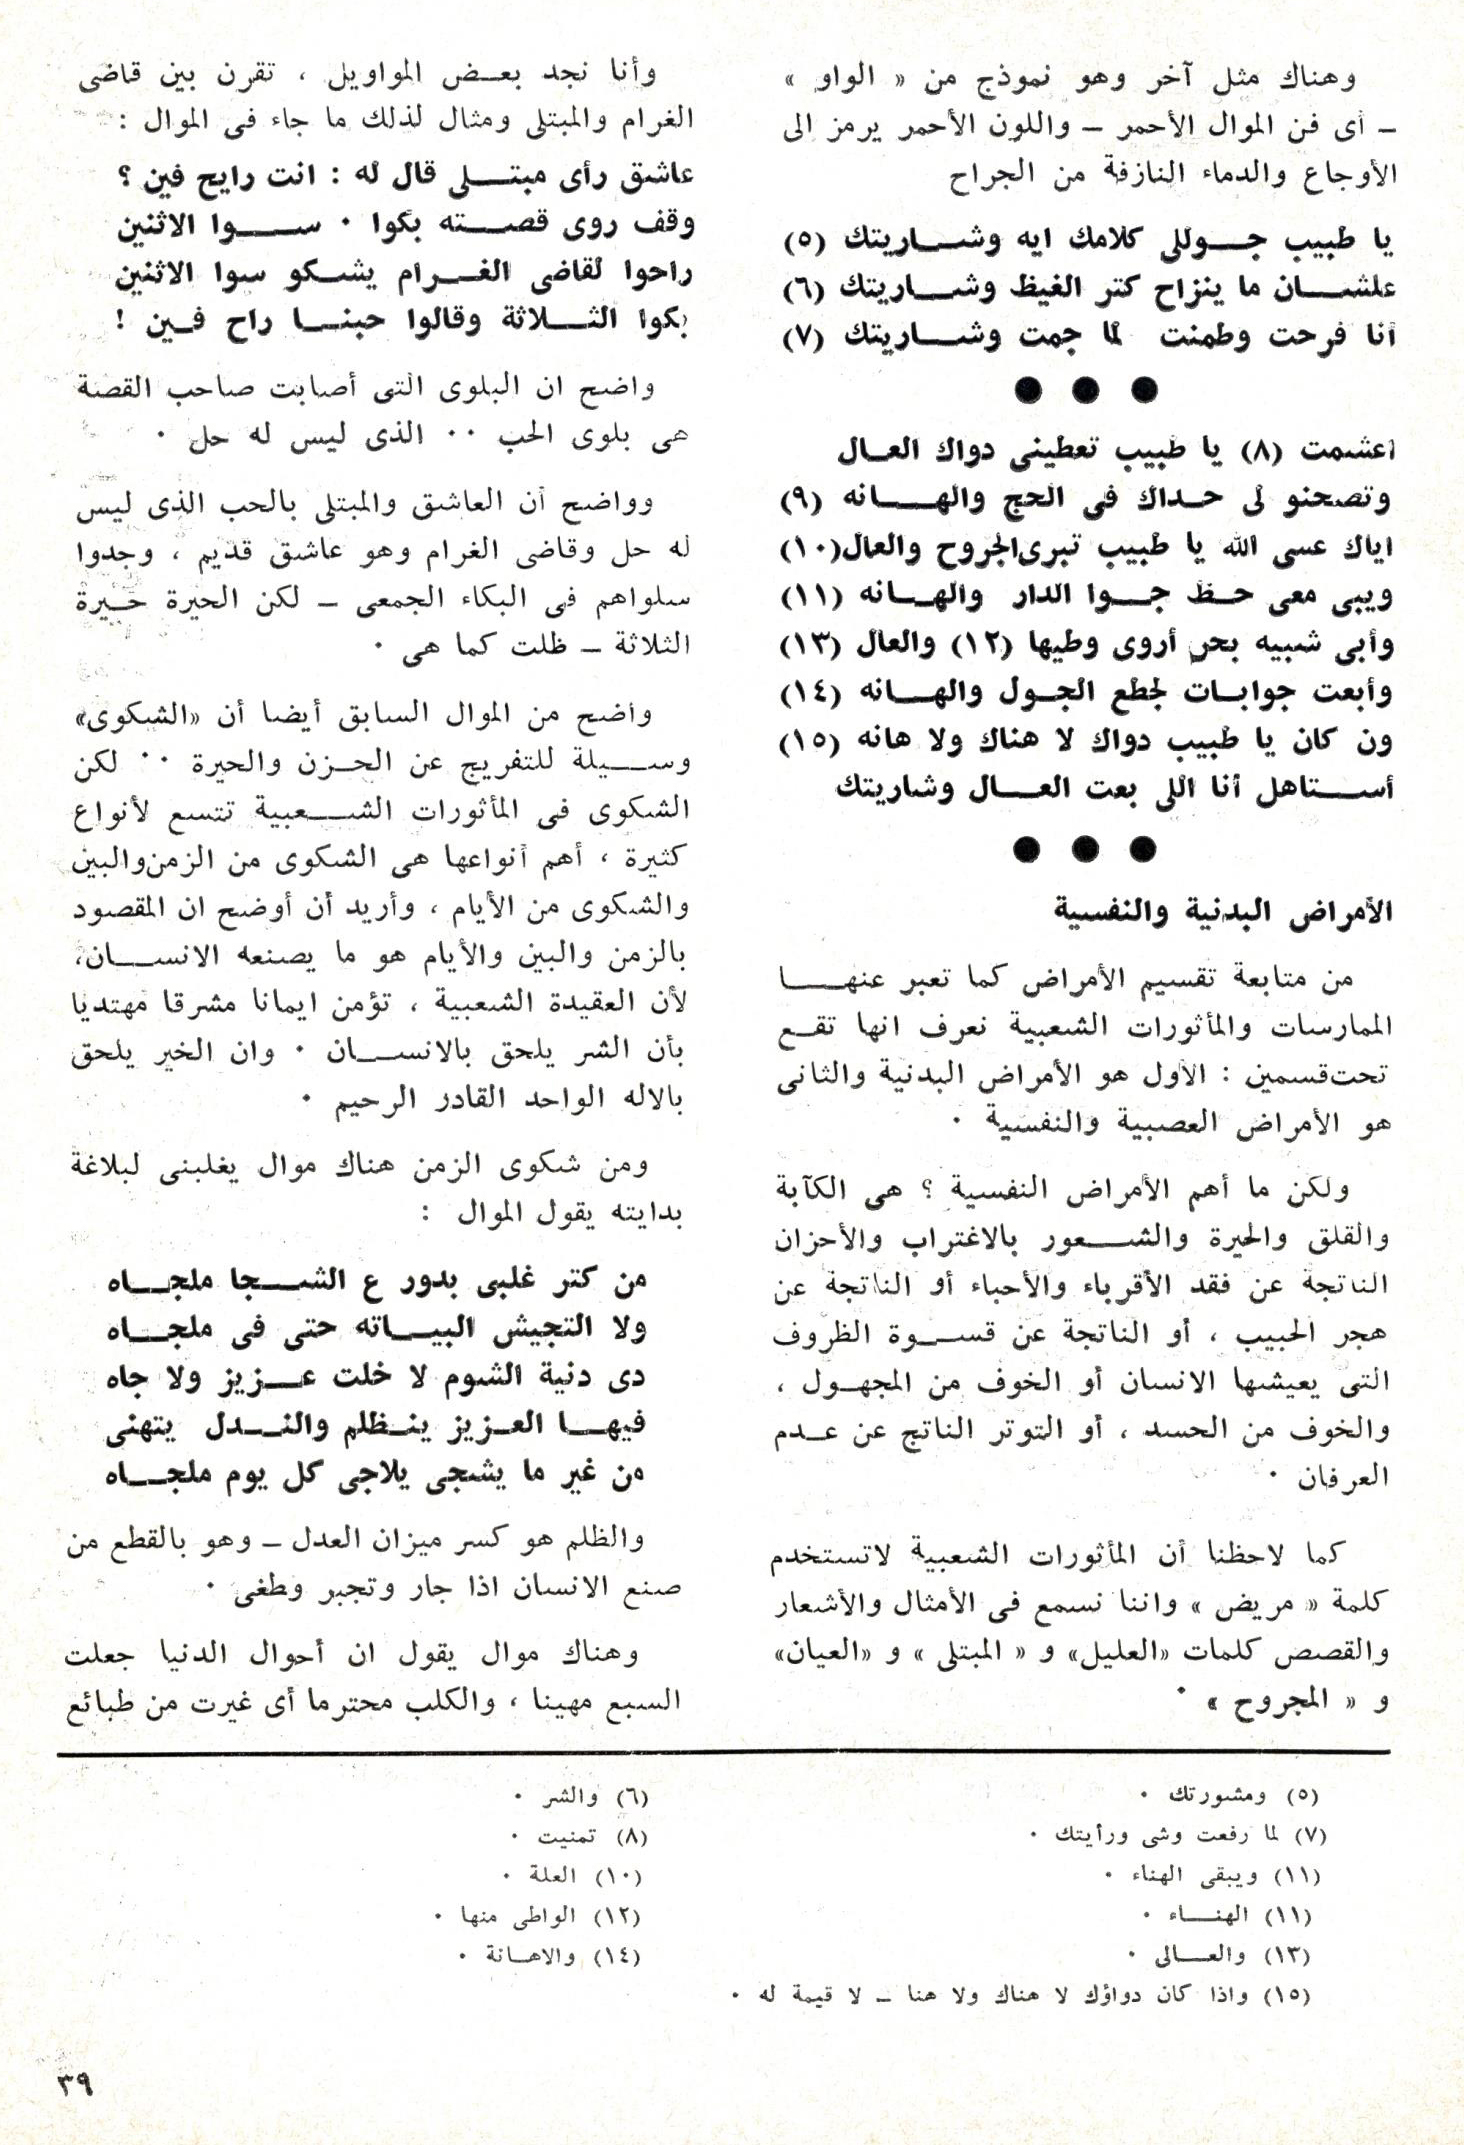 وهناك مثل آخر وهو نموذج من « الواو »
ـ أى فن الموال الأحمر ـ واللون الأحمر يرمز الى
الأوجاع والدماء النازفة من الجراح
يا طبيب جوللى كلامك ايه وشاريتك (٥)
علشان ما ينزاح كتر الغيظ وشاريتك (٦)
أنا فرحت وطمنت لما جمت وشاريتك (٧)
● ● ●
اعشمت (٨) يا طبيب تعطينى دواك العال
وتصحنو لى حداك فى الحج والهانه (٩)
اياك عسى الله يا طبيب تبرى الجروح والعال (١٠)
ويبى معى حظ جوا الدار والهانه (١١)
وأبى شبيه بحر أروى وطيها (١٢) والعال (١٣)
وأبعت جوابات لجطع الجول والهانه (١٤)
ون كان يا طبيب دواك لا هناك ولا هانه (١٥)
أستاهل أنا اللى بعت العال وشاريتك
● ● ●
الأمراض البدنية والنفسية
من متابعة تقسيم الأمراض كما تعبر عنها
الممارسات والمأثورات الشعبية نعرف انها تقع
تحت قسمين : الأول هو الأمراض البدنية والثانى
هو الأمراض العصبية والنفسية ٠
ولكن ما أهم الأمراض النفسية ؟ هى الكآبة
والقلق والحيرة والشعور بالاغتراب والأحزان
الناتجة عن فقد الأقرباء والأحباء أو الناتجة عن
هجر الحبيب ، أو الناتجة عن قسوة الظروف
التى يعيشها الانسان أو الخوف من المجهول ،
والخوف من الحسد ، أو التوتر الناتج عن عدم
العرفان ٠
كما لاحظنا أن المأثورات الشعبية لاتستخدم
كلمة « مريض » واننا نسمع فى الأمثال والأشعار
والقصص كلمات «العليل» و « المبتلى » و «العيان»
و « المجروح » ٠
وأنا نجد بعض المواويل ، تقرن بين قاضى
الغرام والمبتلى ومثال لذلك ما جاء فى الموال :
عاشق رأى مبتلى قال له : انت رايح فين ؟
وقف روى قصته بكوا ٠ سوا الاثنين
راحوا لقاضى الغرام يشكو سوا الاثنين
بكوا الثلاثة وقالوا حبنا راح فين !
واضح ان البلوى التى أصابت صاحب القصة
هى بلوى الحب ٠٠ الذى ليس له حل ٠
وواضح أن العاشق والمبتلى بالحب الذى ليس
له حل وقاضى الغرام وهو عاشق قديم ، وجدوا
سلواهم فى البكاء الجمعى ـ لكن الحيرة حيرة
الثلاثة ـ ظلت كما هى ٠
واضح من الموال السابق أيضا أن «الشكوى»
وسيلة للتفريج عن الحزن والحيرة ٠٠ لكن
الشكوى فى المأثورات الشعبية تتسع لأنواع
كثيرة ، أهم أنواعها هى الشكوى من الزمن والبين
والشكوى من الأيام ، وأريد أن أوضح ان المقصود
بالزمن والبين والأيام هو ما يصنعه الانسان،
لأن العقيدة الشعبية ، تؤمن ايمانا مشرقا مهتديا
بأن الشر يلحق بالانسان ٠ وان الخير يلحق
بالاله الواحد القادر الرحيم ٠
ومن شكوى الزمن هناك موال يغلبنى لبلاغة
بدايته يقول الموال :
من كتر غلبى بدور ع الشجا ملجاه
ولا التجيش البياته حتى فى ملجاه
دى دنية الشوم لا خلت عزيز ولا جاه
فيها العزيز ينظلم والندل يتهنى
من غير ما يشجى يلاجى كل يوم ملجاه
والظلم هو كسر ميزان العدل ـ وهو بالقطع من
صنع الانسان اذا جار وتجبر وطغى ٠
وهناك موال يقول ان أحوال الدنيا جعلت
السبع مهينا ، والكلب محترما أى غيرت من طبائع
(٥) ومشورتك ٠
(٦) والشر ٠
(٧) لما رفعت وشى ورأيتك ٠
(٨) تمنيت ٠
(١١) ويبقى الهناء ٠
(١٠) العلة ٠
(١١) الهناء ٠
(١٢) الواطى منها ٠
(١٣) والعالى ٠
(١٤) والاهانة ٠
(١٥) واذا كان دواؤك لا هناك ولا هنا ـ لا قيمة له ٠
٣٩